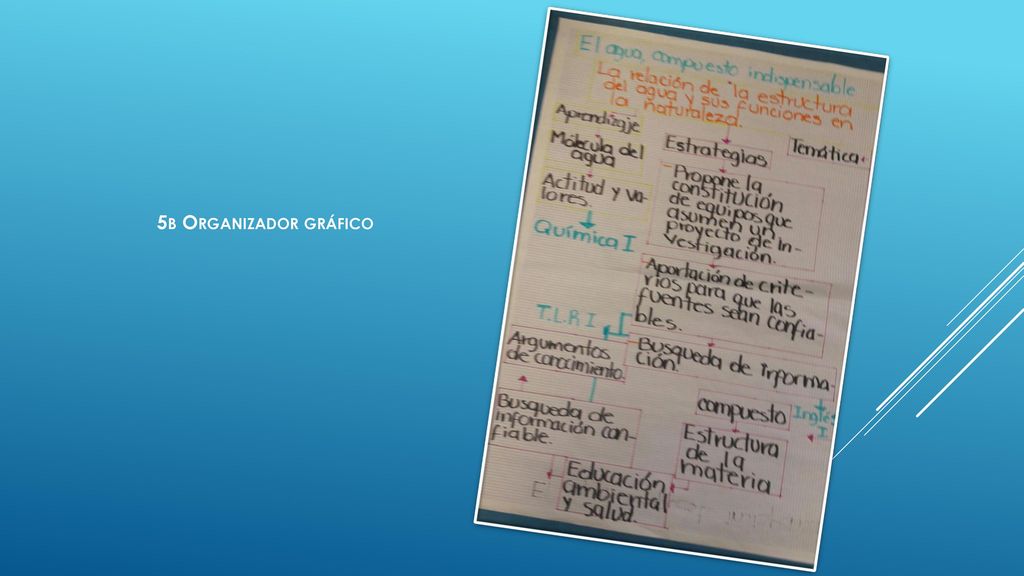 5B ORGANIZADOR GRÁFICO
El agua, compuesto indispensable
La relación de la estructura
del agua y sus funciones en
la naturaleza.
Aprendizaje
Molécula del
agua
Actitud y va-
lores.
Química I
Estrategias
Temática
Propone la
constitución
de equipos que
asumen un
proyecto de In-
vestigación.
Aportación de crite-
rios para que las
fuentes sean confia-
bles.
T.L.R I
Argumentos
de conocimiento.
Busqueda de informa-
ción.
Busqueda de
información con-
fiable.
compuesto
Inglés
I
Estructura
de la
materia
Educación
ambiental
y salud.
E